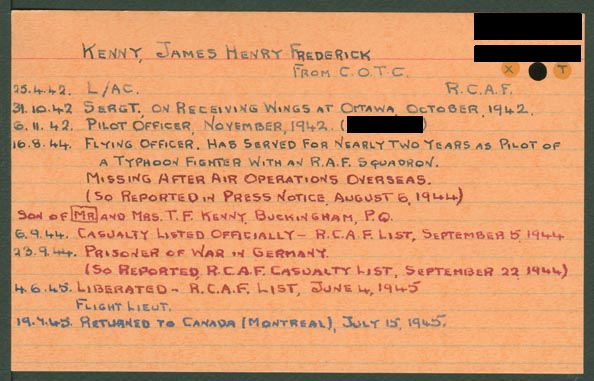 KENNY, JAMES HENRY FREDERICK
X T
FROM C.O.T.C.
25.4.42. L/AC. R.C.A.F.
31.10.42 SERGT, ON RECEIVING WINGS AT OTTAWA, OCTOBER, 1942.
6.11.42. PILOT OFFICER, NOVEMBER, 1942. ( )
16.8.44. FLYING OFFICER. HAS SERVED FOR NEARLY TWO YEARS AS PILOT OF
A TYPHOON FIGHTER WITH AN R.A.F. SQUADRON.
MISSING AFTER AIR OPERATIONS OVERSEAS.
(SO REPORTED IN PRESS NOTICE, AUGUST 6, 1944)
SON OF MR AND MRS. T.F. KENNY, BUCKINGHAM, P.Q.
6.9.44. CASUALTY LISTED OFFICIALLY - R.C.A.F. LIST, SEPTEMBER 5, 1944
23.9.44. PRISONER OF WAR IN GERMANY.
(SO REPORTED, R.C.A.F. CASUALTY LIST, SEPTEMBER 22, 1944)
4.6.45. LIBERATED - R.C.A.F. LIST, JUNE 4, 1945
FLIGHT LIEUT.
19.7.45. RETURNED TO CANADA (MONTREAL), JULY 15, 1945.